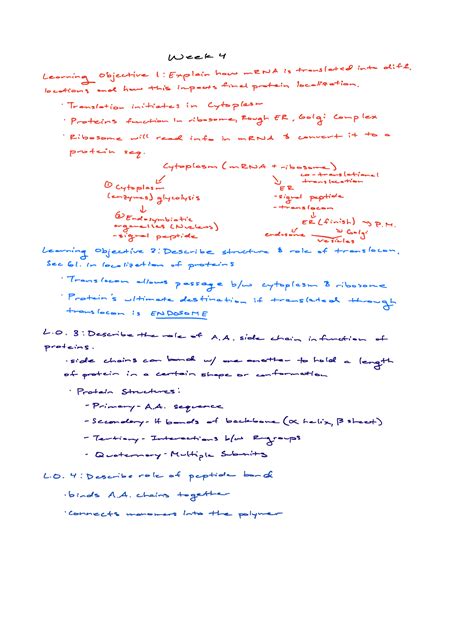 Week 4
Learning Objective 1: Explain how mRNA is translated into diff.
locations and how this impacts final protein localization.
· Translation initiates in cytoplasm
· Proteins function in ribosome, Rough ER, Golgi Complex
· Ribosome will read info in mRNA & convert it to a
protein seq.
Cytoplasm (mRNA + ribosome)
co-translational
translocation
① Cytoplasm
(enzymes) glycolysis
② Endosymbiotic
organelles (Nucleus)
- signal peptide
ER
- signal peptide
- translocon
ER (finish) → P.M.
endosome Golgi
vesicles
Learning Objective 2: Describe structure & role of translocon,
Sec 61, in localization of proteins
· Translocon allows passage b/w cytoplasm & ribosome
· Protein's ultimate destination if translated through
translocon is ENDOSOME
L.O. 3: Describe the role of A.A. side chain in function of
proteins.
· side chains can bond w/ one another to hold a length
of protein in a certain shape or conformation
· Protein Structures:
- Primary - A.A. sequence
- Secondary - H bonds of backbone (α helix, β sheet)
- Tertiary - Interactions b/w R-groups
- Quaternary - Multiple Subunits
L.O. 4: Describe role of peptide bond
· binds A.A. chains together
· connects monomers into the polymer